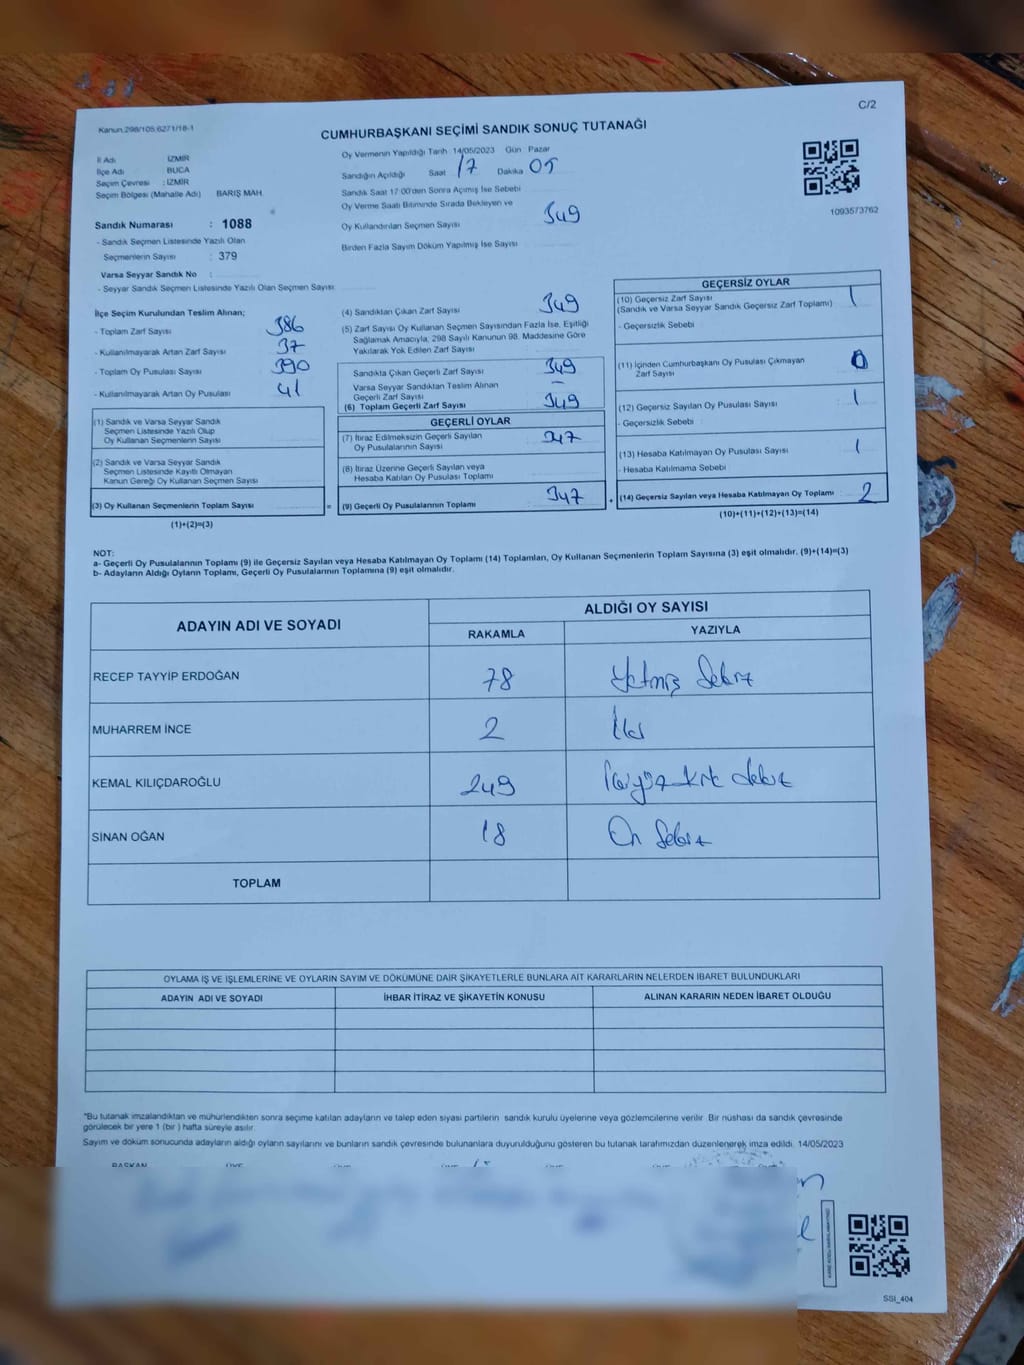 C/2
Kanun.298/105,6271/18-1
CUMHURBAŞKANI SEÇİMİ SANDIK SONUÇ TUTANAĞI
İl Adı İZMİR
İlçe Adı BUCA
Seçim Çevresi : İZMİR
Seçim Bölgesi (Mahalle Adı) BARIŞ MAH.
Oy Vermenin Yapıldığı Tarih 14/05/2023 Gün Pazar
Sandığın Açıldığı Saat 17 Dakika 05
Sandık Saat 17:00'den Sonra Açılmış İse Sebebi
Oy Verme Saati Bitiminde Sırada Bekleyen ve
Oy Kullandırılan Seçmen Sayısı 349
Birden Fazla Sayım Döküm Yapılmış İse Sayısı
1093573762
Sandık Numarası : 1088
- Sandık Seçmen Listesinde Yazılı Olan
Seçmenlerin Sayısı : 379
Varsa Seyyar Sandık No :
- Seyyar Sandık Seçmen Listesinde Yazılı Olan Seçmen Sayısı
İlçe Seçim Kurulundan Teslim Alınan;
- Toplam Zarf Sayısı 386
- Kullanılmayarak Artan Zarf Sayısı 37
- Toplam Oy Pusulası Sayısı 390
- Kullanılmayarak Artan Oy Pusulası 41
(1) Sandık ve Varsa Seyyar Sandık
Seçmen Listesinde Yazılı Olup
Oy Kullanan Seçmenlerin Sayısı
(2) Sandık ve Varsa Seyyar Sandık
Seçmen Listesinde Kayıtlı Olmayan
Kanun Gereği Oy Kullanan Seçmen Sayısı
(3) Oy Kullanan Seçmenlerin Toplam Sayısı
(1)+(2)=(3)
=
(4) Sandıktan Çıkan Zarf Sayısı 349
(5) Zarf Sayısı Oy Kullanan Seçmen Sayısından Fazla İse, Eşitliği
Sağlamak Amacıyla, 298 Sayılı Kanunun 98. Maddesine Göre
Yakılarak Yok Edilen Zarf Sayısı
Sandıkta Çıkan Geçerli Zarf Sayısı 349
Varsa Seyyar Sandıktan Teslim Alınan
Geçerli Zarf Sayısı –
(6) Toplam Geçerli Zarf Sayısı 349
GEÇERLİ OYLAR
(7) İtiraz Edilmeksizin Geçerli Sayılan
Oy Pusulalarının Sayısı 347
(8) İtiraz Üzerine Geçerli Sayılan veya
Hesaba Katılan Oy Pusulası Toplamı
(9) Geçerli Oy Pusulalarının Toplamı 347
+
GEÇERSİZ OYLAR
(10) Geçersiz Zarf Sayısı 1
(Sandık ve Varsa Seyyar Sandık Geçersiz Zarf Toplamı)
- Geçersizlik Sebebi
(11) İçinden Cumhurbaşkanı Oy Pusulası Çıkmayan
Zarf Sayısı 0
(12) Geçersiz Sayılan Oy Pusulası Sayısı 1
- Geçersizlik Sebebi
(13) Hesaba Katılmayan Oy Pusulası Sayısı 1
- Hesaba Katılmama Sebebi
(14) Geçersiz Sayılan veya Hesaba Katılmayan Oy Toplamı 2
(10)+(11)+(12)+(13)=(14)
NOT:
a- Geçerli Oy Pusulalarının Toplamı (9) ile Geçersiz Sayılan veya Hesaba Katılmayan Oy Toplamı (14) Toplamları, Oy Kullanan Seçmenlerin Toplam Sayısına (3) eşit olmalıdır. (9)+(14)=(3)
b- Adayların Aldığı Oyların Toplamı, Geçerli Oy Pusulalarının Toplamına (9) eşit olmalıdır.
ADAYIN ADI VE SOYADI
ALDIĞI OY SAYISI
RAKAMLA YAZIYLA
RECEP TAYYİP ERDOĞAN 78 Yetmiş Sekiz
MUHARREM İNCE 2 İki
KEMAL KILIÇDAROĞLU 249 İkiyüz kırk sekiz
SİNAN OĞAN 18 On Sekiz
TOPLAM
OYLAMA İŞ VE İŞLEMLERİNE VE OYLARIN SAYIM VE DÖKÜMÜNE DAİR ŞİKAYETLERLE BUNLARA AİT KARARLARIN NELERDEN İBARET BULUNDUKLARI
ADAYIN ADI VE SOYADI İHBAR İTİRAZ VE ŞİKAYETİN KONUSU ALINAN KARARIN NEDEN İBARET OLDUĞU
*Bu tutanak imzalandıktan ve mühürlendikten sonra seçime katılan adayların ve talep eden siyasi partilerin sandık kurulu üyelerine veya gözlemcilerine verilir. Bir nüshası da sandık çevresinde
görülecek bir yere 1 (bir ) hafta süreyle asılır.
Sayım ve döküm sonucunda adayların aldığı oyların sayılarını ve bunların sandık çevresinde bulunanlara duyurulduğunu gösteren bu tutanak tarafımızdan düzenlenerek imza edildi. 14/05/2023
BAŞKAN ÜYE
SSI_404